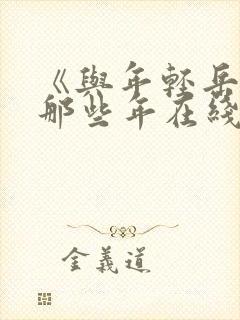 《與年輕岳
那些年在綫
金義道